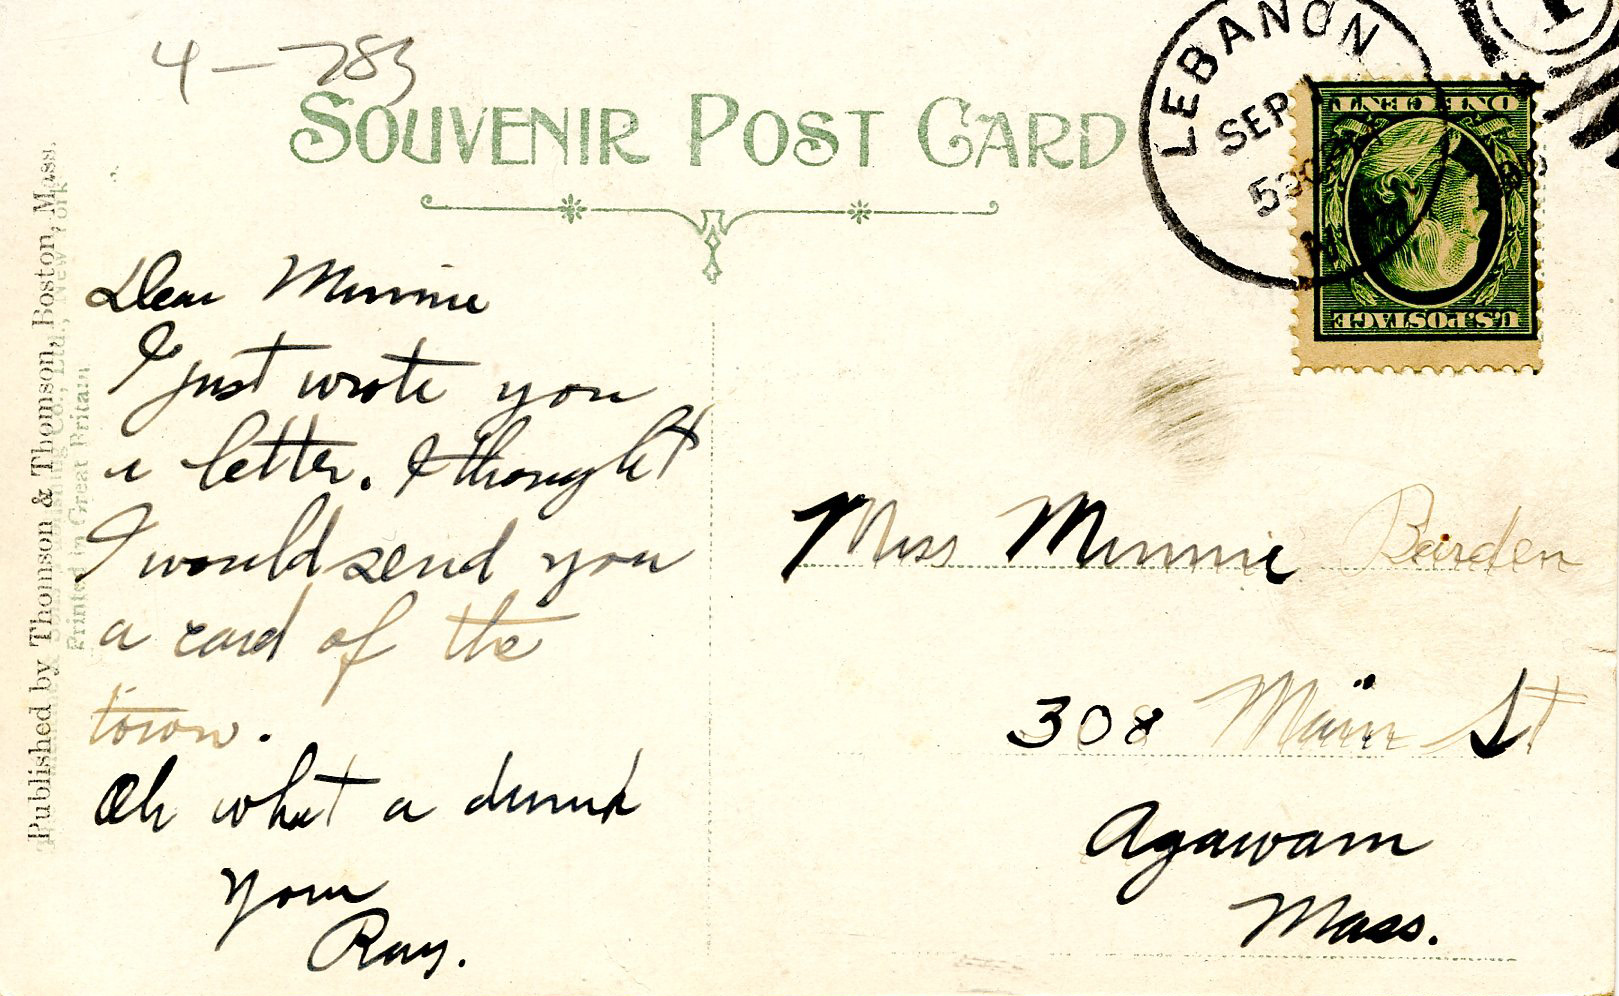 4 – 783
SOUVENIR POST CARD
LEBANON
SEP
ONE CENT
U.S. POSTAGE
Published by Thomson & Thomson, Boston, Mass.
Printed in Great Britain
Dear Minnie
I just wrote you
a letter. I thought
I would send you
a card of the
town.
Oh what a drunk
Your
Ray.
Miss Minnie Barden
308 Main St
Agawam
Mass.